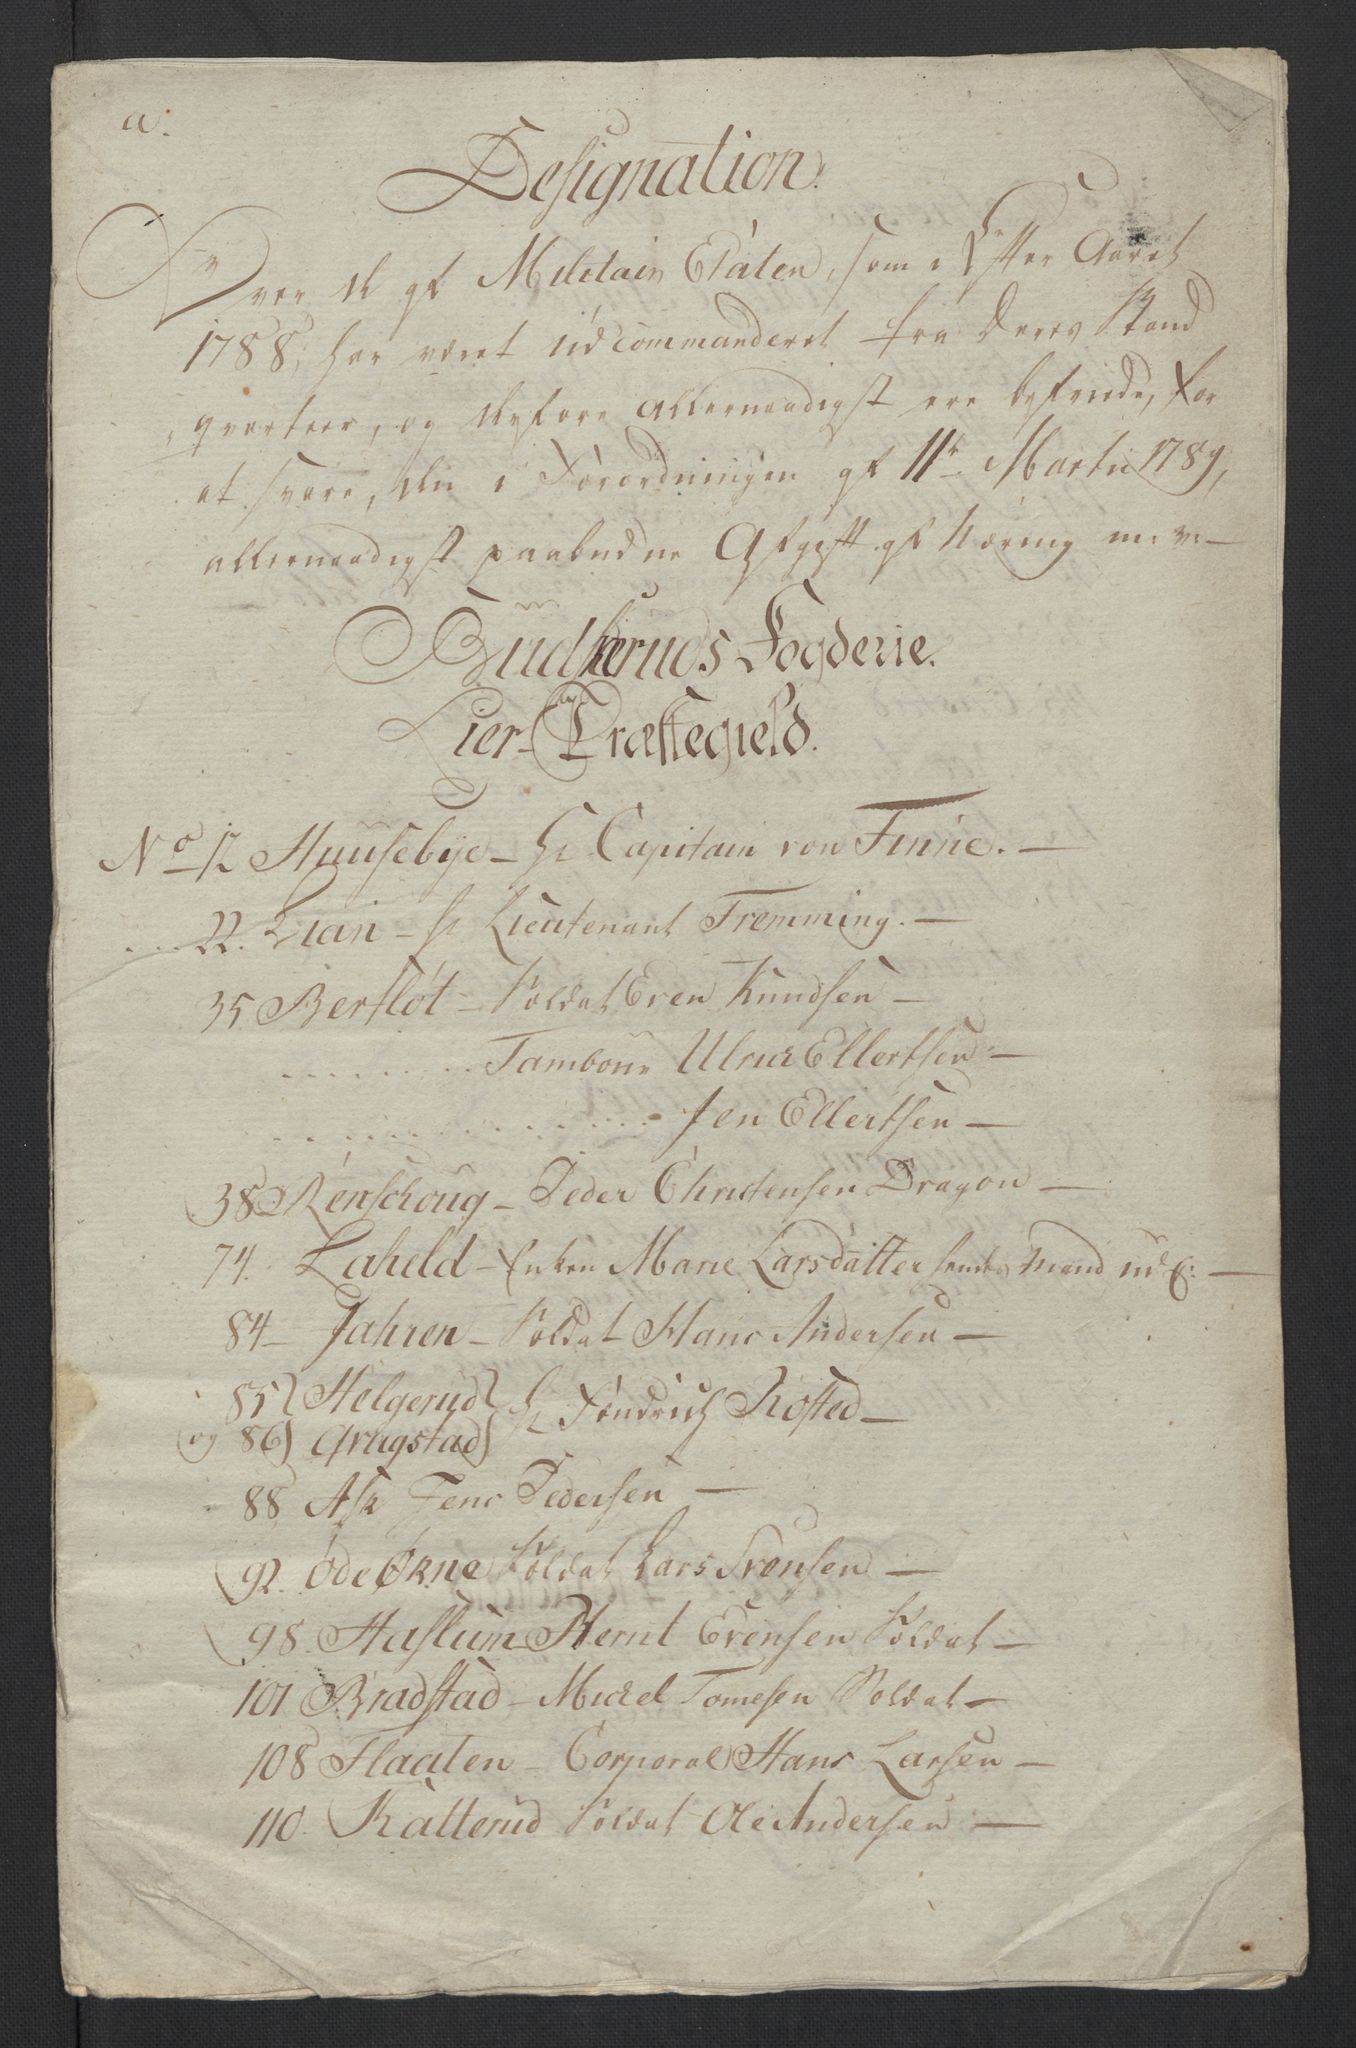 a.
Designation.
Over de af Militair Etaten, som i Efter Aaret
1788, har været udcommanderet fra deres Stand
qvarteer, og derfore allernaadigst ere befriede, for
at svare, den i Forordningen af 11te Martii 1789,
allernaadigst paabudne Afgift af Næring m: v:
Budskeruds Fogderie.
Lier-Præstegield.
No 12 Huusebye - Hr Capitain von Finne. -
22. Lian - Hr Lieutenant Fremming. -
35 Berfløt - Soldat Even Knudsen -
Tambour Ulrick Ellertsen -
Jen Ellertsen -
38 Renschoug - Peder Christensen Dragon -
74. Laheld - Enken Marie Larsdatter hendes Mand ud C: -
84 - Jahren - Soldat Hans Andersen -
85 Helgerud
og 86 Grugstad } Hr Fendrich Rosted -
88 Ask Jens Pedersen -
92. Øde Økne Soldat Lars Svensen -
98. Haslum Bernt Evensen Soldat -
101 Bradstad - Mickel Tomesen Soldat -
108 Flaaten - Corporal Hans Larsen -
110. Katterud Soldat Ole Andersen -